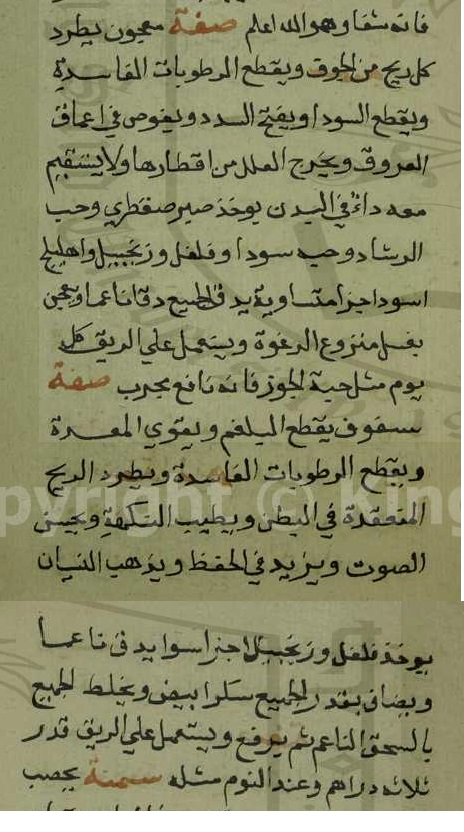 فانه شفا وهو الله اعلم صفة معجون يطرد
كل ريح من الجوف ويقطع الرطوبات الفاسدة
ويقطع السودا ويفتح السدد ويغوص في اعماق
العروق ويخرج العلل من اقطارها ولا يستقيم
معه داء في البدن يوخذ صبر صقطري وحب
الرشاد وحبه سودا وفلفل وزنجبيل واهليلج
اسود اجزا متساوية يدق الجميع دقا ناعما ويعجن
بعسل منزوع الرغوة ويستعمل علي الريق كل
يوم مثل حبة الجوز فانه نافع مجرب صفة
سفوف يقطع البلغم ويقوي المعدة
ويقطع الرطوبات الفاسدة ويطرد الريح
المنعقدة في البطن ويطيب النكهة ويحسن
الصوت ويزيد في الحفظ ويذهب النسيان
يوخذ فلفل وزنجبيل اجزا سوا يدق ناعما
ويضاف بقدر الجميع سكر ابيض ويخلط الجميع
بالسحق الناعم ثم يرفع ويستعمل علي الريق قدر
ثلاثه دراهم وعند النوم مثله سمنة يخصب